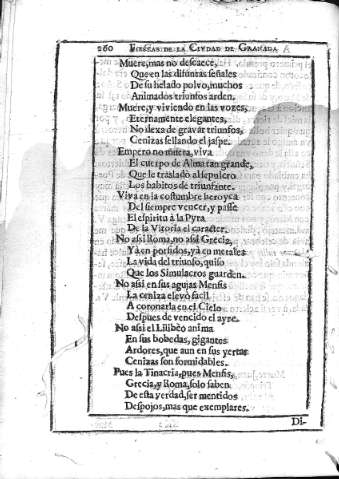 260 FIESTAS DE LA CIVDAD DE GRANADA
Muere, mas no descaece,
Que en las difuntas señales
De su helado polvo, muchos
Animados triunfos arden.
Muere, y viviendo en las vozes,
Eternamente elegantes,
No dexa de gravar triunfos,
Cenizas sellando el jaspe.
Empero no muera, viva
El cuerpo de Alma tan grande,
Que le trasladò al sepulcro
Los habitos de triunfante.
Viva en la costumbre heroyca
Del siempre vencer, y passe
El espiritu à la Pyra
De la Vitoria el caracter.
No assi Roma, no assi Grecia,
Yà en porfidos, yà en metales
La vida del triunfo, quiso
Que los Simulacros guarden.
No assi en sus agujas Menfis
La ceniza elevò facil
A coronarla en el Cielo
Despues de vencido el ayre.
No assi el Lilibèo anima
En sus bobedas, gigantes
Ardores, que aun en sus yertas
Cenizas son formidables.
Pues la Tinacria, pues Menfis,
Grecia, y Roma, solo saben
De esta verdad, ser mentidos
Despojos, mas que exemplares.
Di-